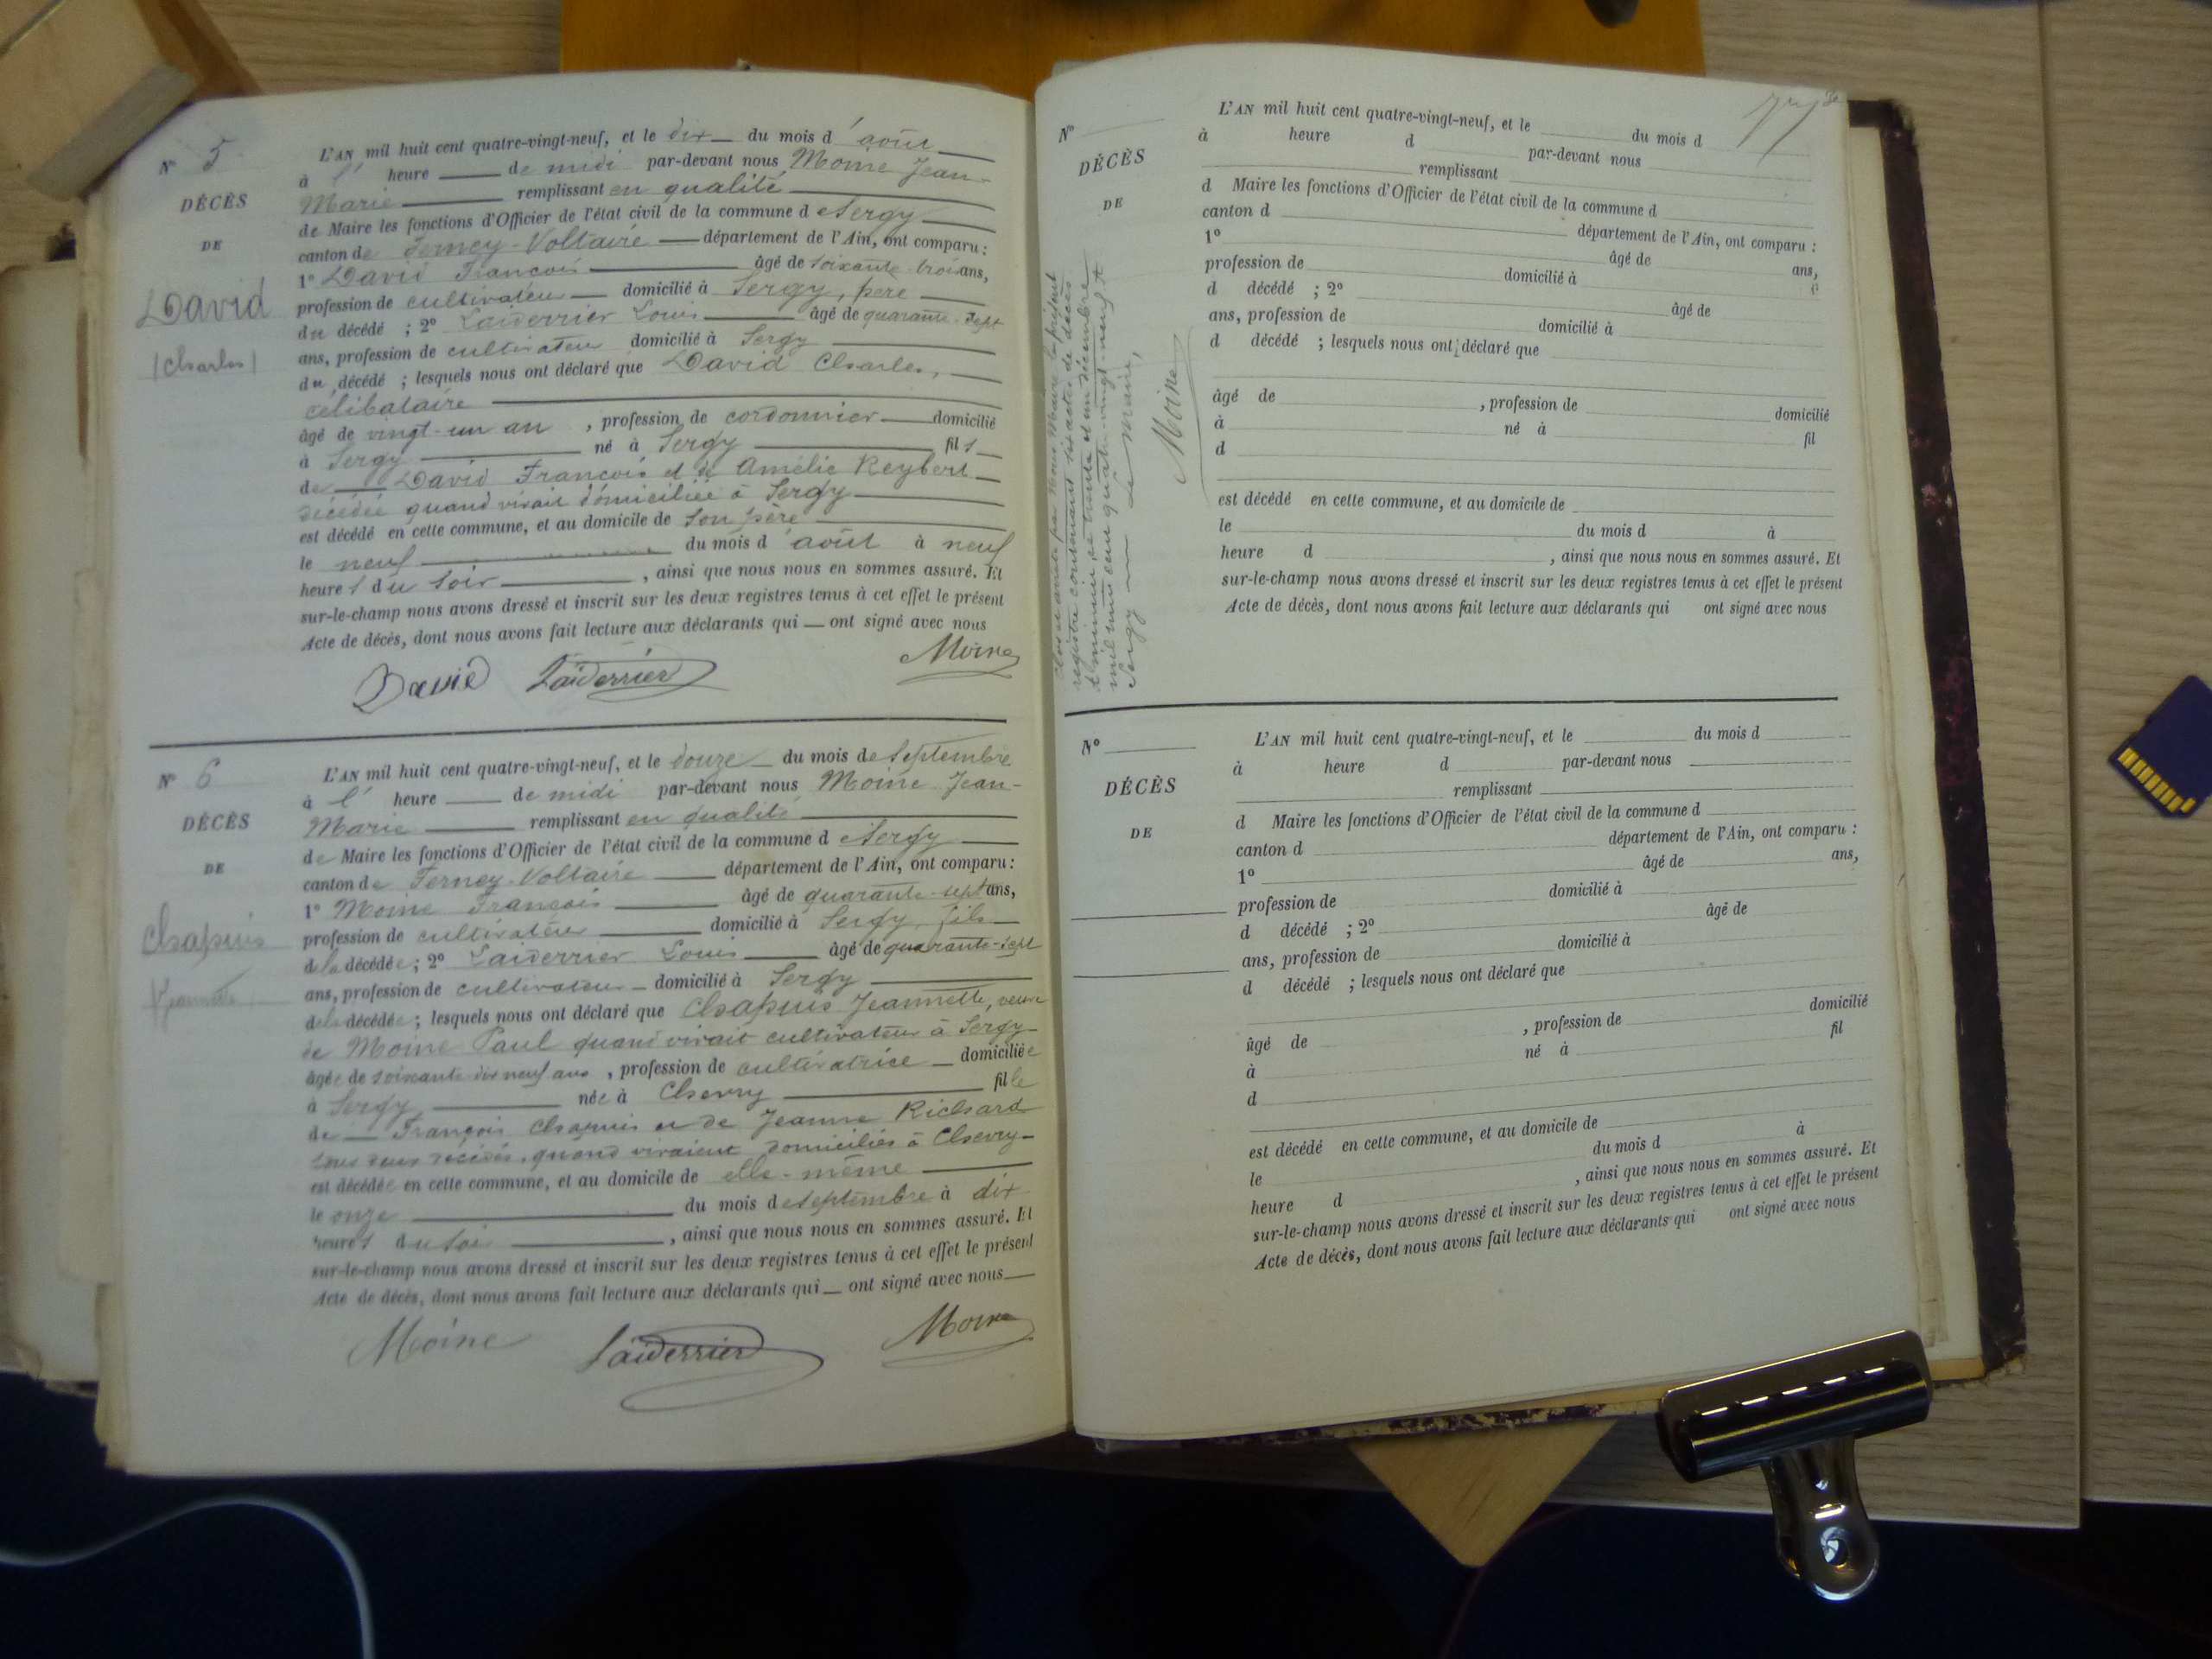 N° 5
DÉCÈS
DE
David
(Charles)
L'AN mil huit cent quatre-vingt-neuf, et le dix du mois d'août
à l' heure de midi par-devant nous Moine Jean-
Marie remplissant en qualité
de Maire les fonctions d'Officier de l'état civil de la commune de Sergy
canton de Ferney-Voltaire département de l'Ain, ont comparu :
1° David François âgé de soixante-trois ans,
profession de cultivateur domicilié à Sergy, père
du décédé ; 2° Laiderrier Louis âgé de quarante-sept
ans, profession de cultivateur domicilié à Sergy
du décédé ; lesquels nous ont déclaré que David Charles,
célibataire
âgé de vingt-un an , profession de cordonnier domicilié
à Sergy né à Sergy fils
de David François et de Amélie Reybert
décédée quand vivait domiciliée à Sergy
est décédé en cette commune, et au domicile de son père
le neuf du mois d'août à neuf
heures du soir , ainsi que nous nous en sommes assuré. Et
sur-le-champ nous avons dressé et inscrit sur les deux registres tenus à cet effet le présent
Acte de décès, dont nous avons fait lecture aux déclarants qui ont signé avec nous
David Laiderrier Moine
N° 6
DÉCÈS
DE
Chapuis
(Jeannette)
L'AN mil huit cent quatre-vingt-neuf, et le douze du mois de septembre
à l' heure de midi par-devant nous Moine Jean-
Marie remplissant en qualité
de Maire les fonctions d'Officier de l'état civil de la commune de Sergy
canton de Ferney-Voltaire département de l'Ain, ont comparu :
1° Moine François âgé de quarante-sept ans,
profession de cultivateur domicilié à Sergy, fils
de la décédée ; 2° Laiderrier Louis âgé de quarante-sept
ans, profession de cultivateur domicilié à Sergy
de la décédée ; lesquels nous ont déclaré que Chapuis Jeannette, veuve
de Moine Paul quand vivait cultivateur à Sergy
âgée de soixante dix neuf ans , profession de cultivatrice domiciliée
à Sergy née à Chevry fille
de François Chapuis et de Jeanne Richard
tous deux décédés, quand vivaient domiciliés à Chevry
est décédée en cette commune, et au domicile de elle-même
le onze du mois de septembre à dix
heures du soir , ainsi que nous nous en sommes assuré. Et
sur-le-champ nous avons dressé et inscrit sur les deux registres tenus à cet effet le présent
Acte de décès, dont nous avons fait lecture aux déclarants qui ont signé avec nous
Moine Laiderrier Moine
N°
DÉCÈS
DE
Clos et arrêté par Nous Maire le présent
registre contenant six actes de décès
le trente et un décembre
mil huit cent quatre-vingt-neuf
Sergy le maire,
Moine
L'AN mil huit cent quatre-vingt-neuf, et le du mois d
à heure d par-devant nous
remplissant
d Maire les fonctions d'Officier de l'état civil de la commune d
canton d département de l'Ain, ont comparu :
1° âgé de ans,
profession de domicilié à
d décédé ; 2° âgé de
ans, profession de domicilié à
d décédé ; lesquels nous ont déclaré que
âgé de , profession de domicilié
à né à fil
d
est décédé en cette commune, et au domicile de
le du mois d à
heure d , ainsi que nous nous en sommes assuré. Et
sur-le-champ nous avons dressé et inscrit sur les deux registres tenus à cet effet le présent
Acte de décès, dont nous avons fait lecture aux déclarants qui ont signé avec nous
N°
DÉCÈS
DE
L'AN mil huit cent quatre-vingt-neuf, et le du mois d
à heure d par-devant nous
remplissant
d Maire les fonctions d'Officier de l'état civil de la commune d
canton d département de l'Ain, ont comparu :
1° âgé de ans,
profession de domicilié à
d décédé ; 2° âgé de
ans, profession de domicilié à
d décédé ; lesquels nous ont déclaré que
âgé de , profession de domicilié
à né à fil
d
est décédé en cette commune, et au domicile de
le du mois d à
heure d , ainsi que nous nous en sommes assuré. Et
sur-le-champ nous avons dressé et inscrit sur les deux registres tenus à cet effet le présent
Acte de décès, dont nous avons fait lecture aux déclarants qui ont signé avec nous